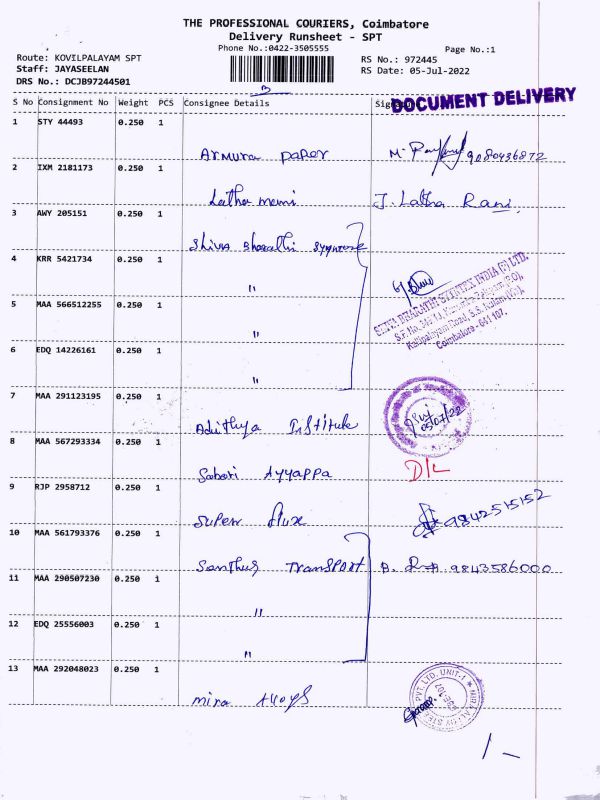 THE PROFESSIONAL COURIERS, Coimbatore
Delivery Runsheet - SPT
Phone No.:0422-3505555
Page No.:1
Route: KOVILPALAYAM SPT
RS No.: 972445
Staff: JAYASEELAN
RS Date: 05-Jul-2022
DRS No.: DCJB97244501
DOCUMENT DELIVERY
S No Consignment No Weight PCS Consignee Details
1 STY 44493 0.250 1
Armura paper 9080436872
2 IXM 2181173 0.250 1
Latha mani J. Latha Rani
3 AWY 205151 0.250 1
Shiva Bharathi
4 KRR 5421734 0.250 1
"
SHIVA BHARATHI SYNTEX INDIA (P) LTD.
Coimbatore - 641 107.
5 MAA 566512255 0.250 1
"
6 EDQ 14226161 0.250 1
"
7 MAA 291123195 0.250 1
Adithya Institute
05/07/22
8 MAA 567293334 0.250 1
Sabari Ayyappa D/L
9 RJP 2958712 0.250 1
Super flux 9842515152
10 MAA 561793376 0.250 1
Santhus Transport 9843586000
11 MAA 290507230 0.250 1
"
12 EDQ 25556003 0.250 1
"
13 MAA 292048023 0.250 1
mira Alloys
PVT. LTD. UNIT-1